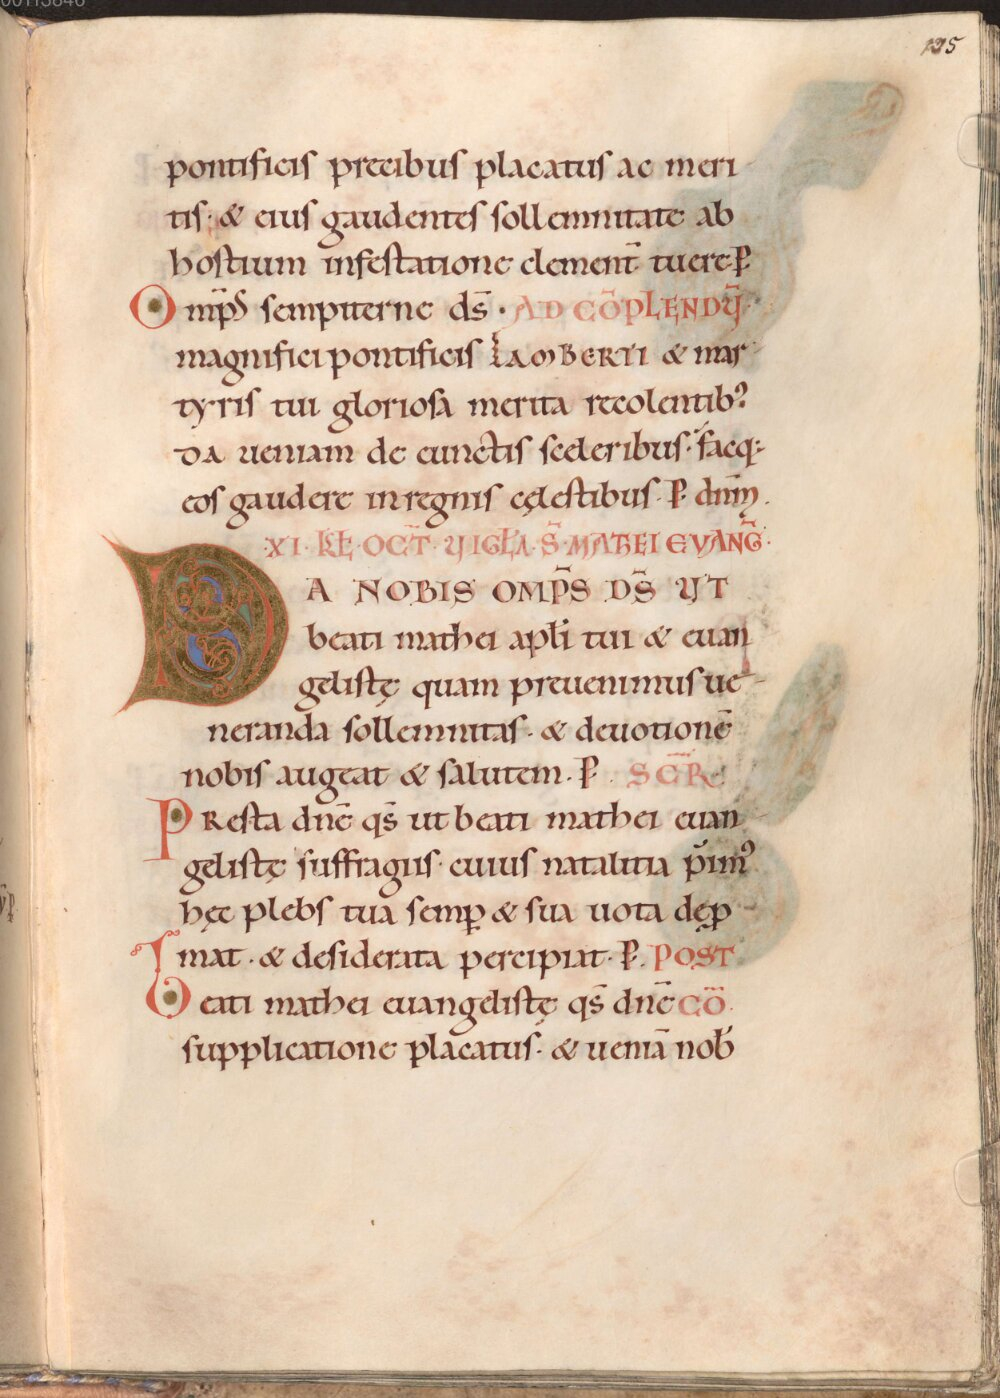 135
pontificis precibus placatus ac meri
tis · & eius gaudentes sollemnitate ab
hostium infestatione clement̄ tuere P̄
Omp̄s sempiterne ds̄ · AD CŌPLENDV̄
magnifici pontificis LAMBERTI & mar
tyris tui gloriosa merita recolentib;
DA ueniam de cunctis sceleribus · facq;
eos gaudere in regnis cęlestibus · P̄ dnm̄
XI · KL̄ · OCT̄ · VIGL̄A · S̄ · MATHEI EVANḠ ·
DA NOBIS OMP̄S DS̄ UT
beati mathei apl̄i tui & euan
gelistę quam preuenimus ue
neranda sollemnitas · & deuotionē
nobis augeat & salutem · P̄ · SECR̄
Presta dnē qs̄ ut beati mathei euan
gelistę suffragiis · cuius natalitia p̄uim᾽
hęc plebs tua semp̱ & sua uota dep̱
I mat · & desiderata percipiat · P̄ · POST
Beati mathei euangelistę qs̄ dnē CŌ
supplicatione placatus · & ueniā nob̄